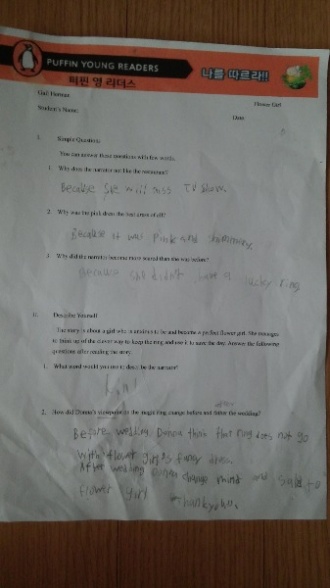 PUFFIN YOUNG READERS
퍼핀 영 리더스
나를 따르라!!
Gail Herman
Flower Girl
Student's Name:
Date
I. Simple Question:
You can answer these questions with few words.
1. Why does the narrator not like the
Because She will miss TV show.
2. Why was the pink dress the best dress of all?
Because it was Pink and shimmery.
3. Why did the narrator become more scared than she was before?
Because she didn't have a lucky ring
II. Describe Yourself
The story is about a girl who is anxious to be and become a perfect flower girl. She manages
to think up of the clever way to keep the ring and use it to save the day. Answer the following
questions after reading the story.
1. What word would you use to describe the narrator?
after
2. How did Donna's viewpoint to the magic ring change before and follow the wedding?
Before wedding Donna think that ring does not go
with flower girl's fancy dress.
After wedding Donna change mind and said to
flower girl
Thank you.